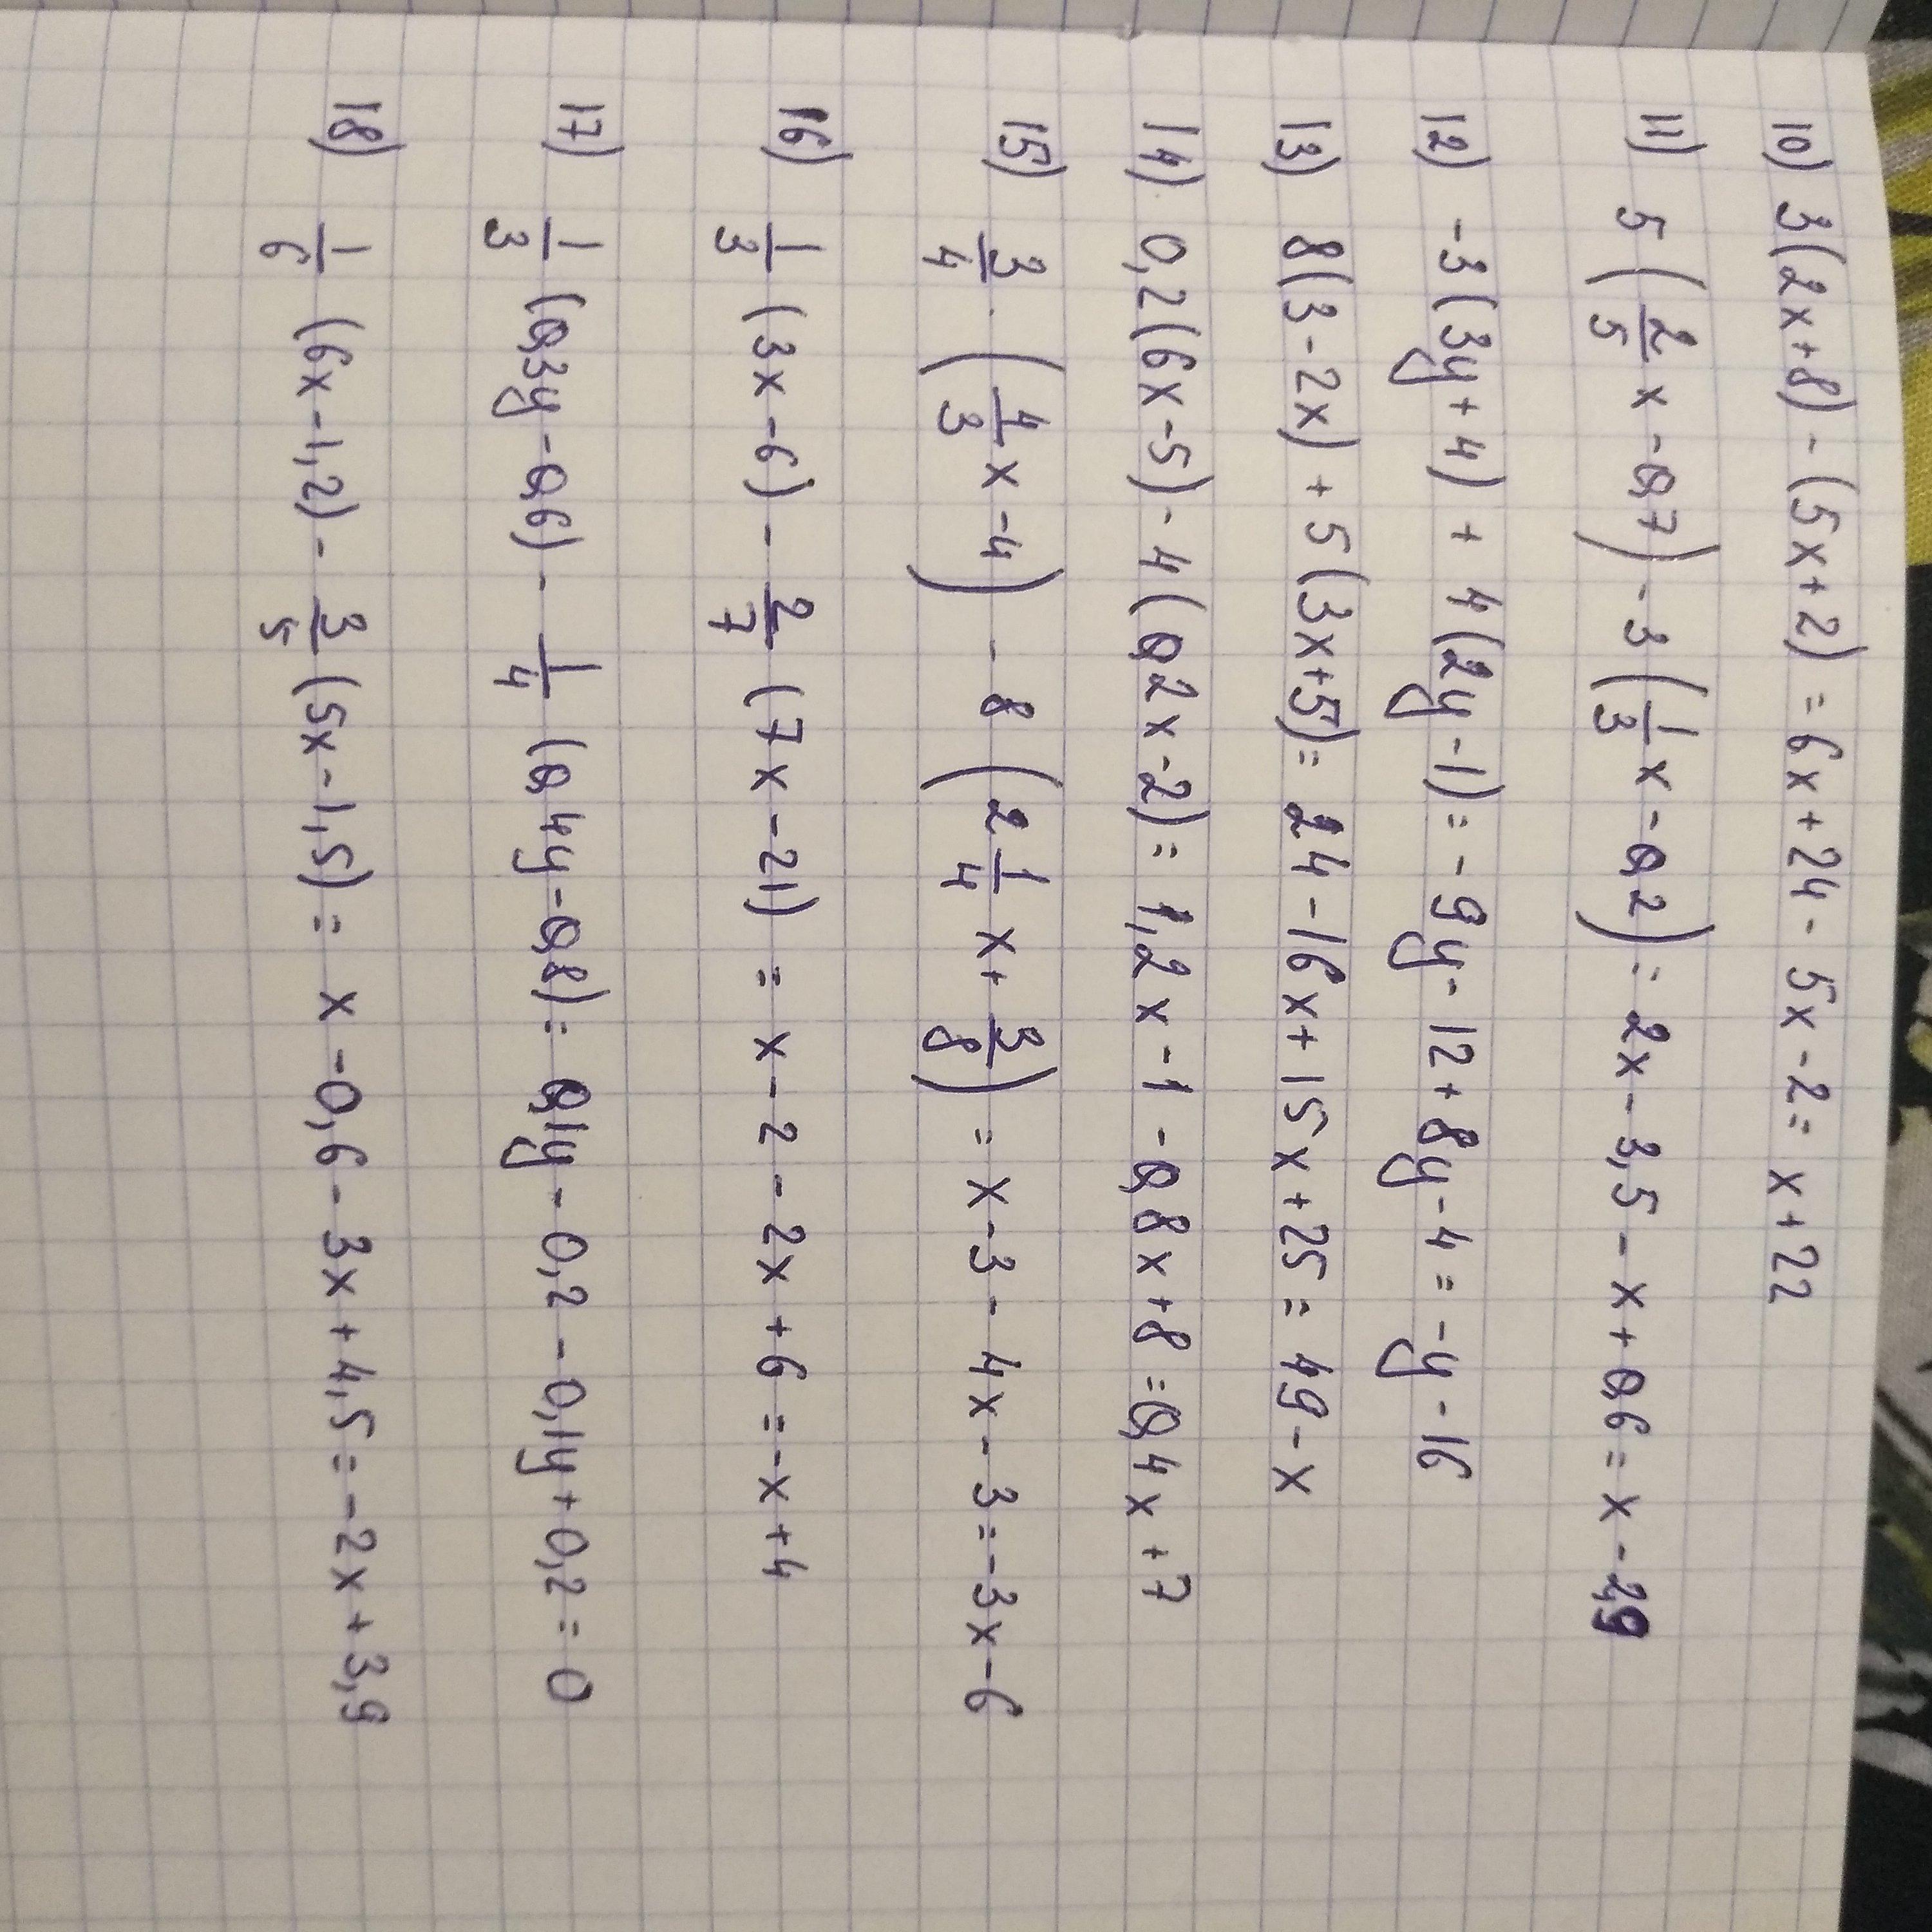 10) 3(2x+8) - (5x+2) = 6x+24 - 5x -2 = x+22
11) 5(2/5 x - 0,7) - 3(1/3 x - 0,2) = 2x - 3,5 - x + 0,6 = x - 2,9
12) -3(3y+4) + 4(2y-1) = -9y - 12 + 8y - 4 = -y - 16
13) 8(3-2x) + 5(3x+5) = 24 - 16x + 15x + 25 = 49 - x
14) 0,2(6x-5) - 4(0,2x-2) = 1,2x - 1 - 0,8x + 8 = 0,4x + 7
15) 3/4 · (4/3 x - 4) - 8(2 1/4 x + 3/8) = x - 3 - 4x - 3 = -3x - 6
16) 1/3 (3x - 6) - 2/7 (7x - 21) = x - 2 - 2x + 6 = -x + 4
17) 1/3 (0,3y - 0,6) - 1/4 (0,4y - 0,8) = 0,1y - 0,2 - 0,1y + 0,2 = 0
18) 1/6 (6x - 1,2) - 3/5 (5x - 1,5) = x - 0,6 - 3x + 4,5 = -2x + 3,9